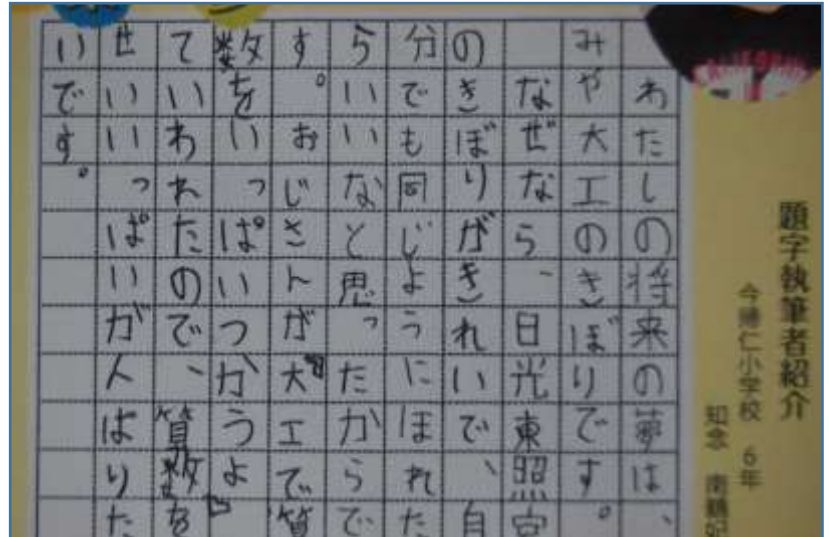 題字執筆者紹介
今帰仁小学校 6年
知念 南鶴妃
わたしの将来の夢は、
みや大工のきぼりです。
なぜなら、日光東照宮
のきぼりがきれいで、自
分でも同じようにほれた
らいいなと思ったからで
す。おじさんが大工で算
数をいっぱいつかうよ
ていわれたので、算数を
せいいっぱいがんはりた
いです。